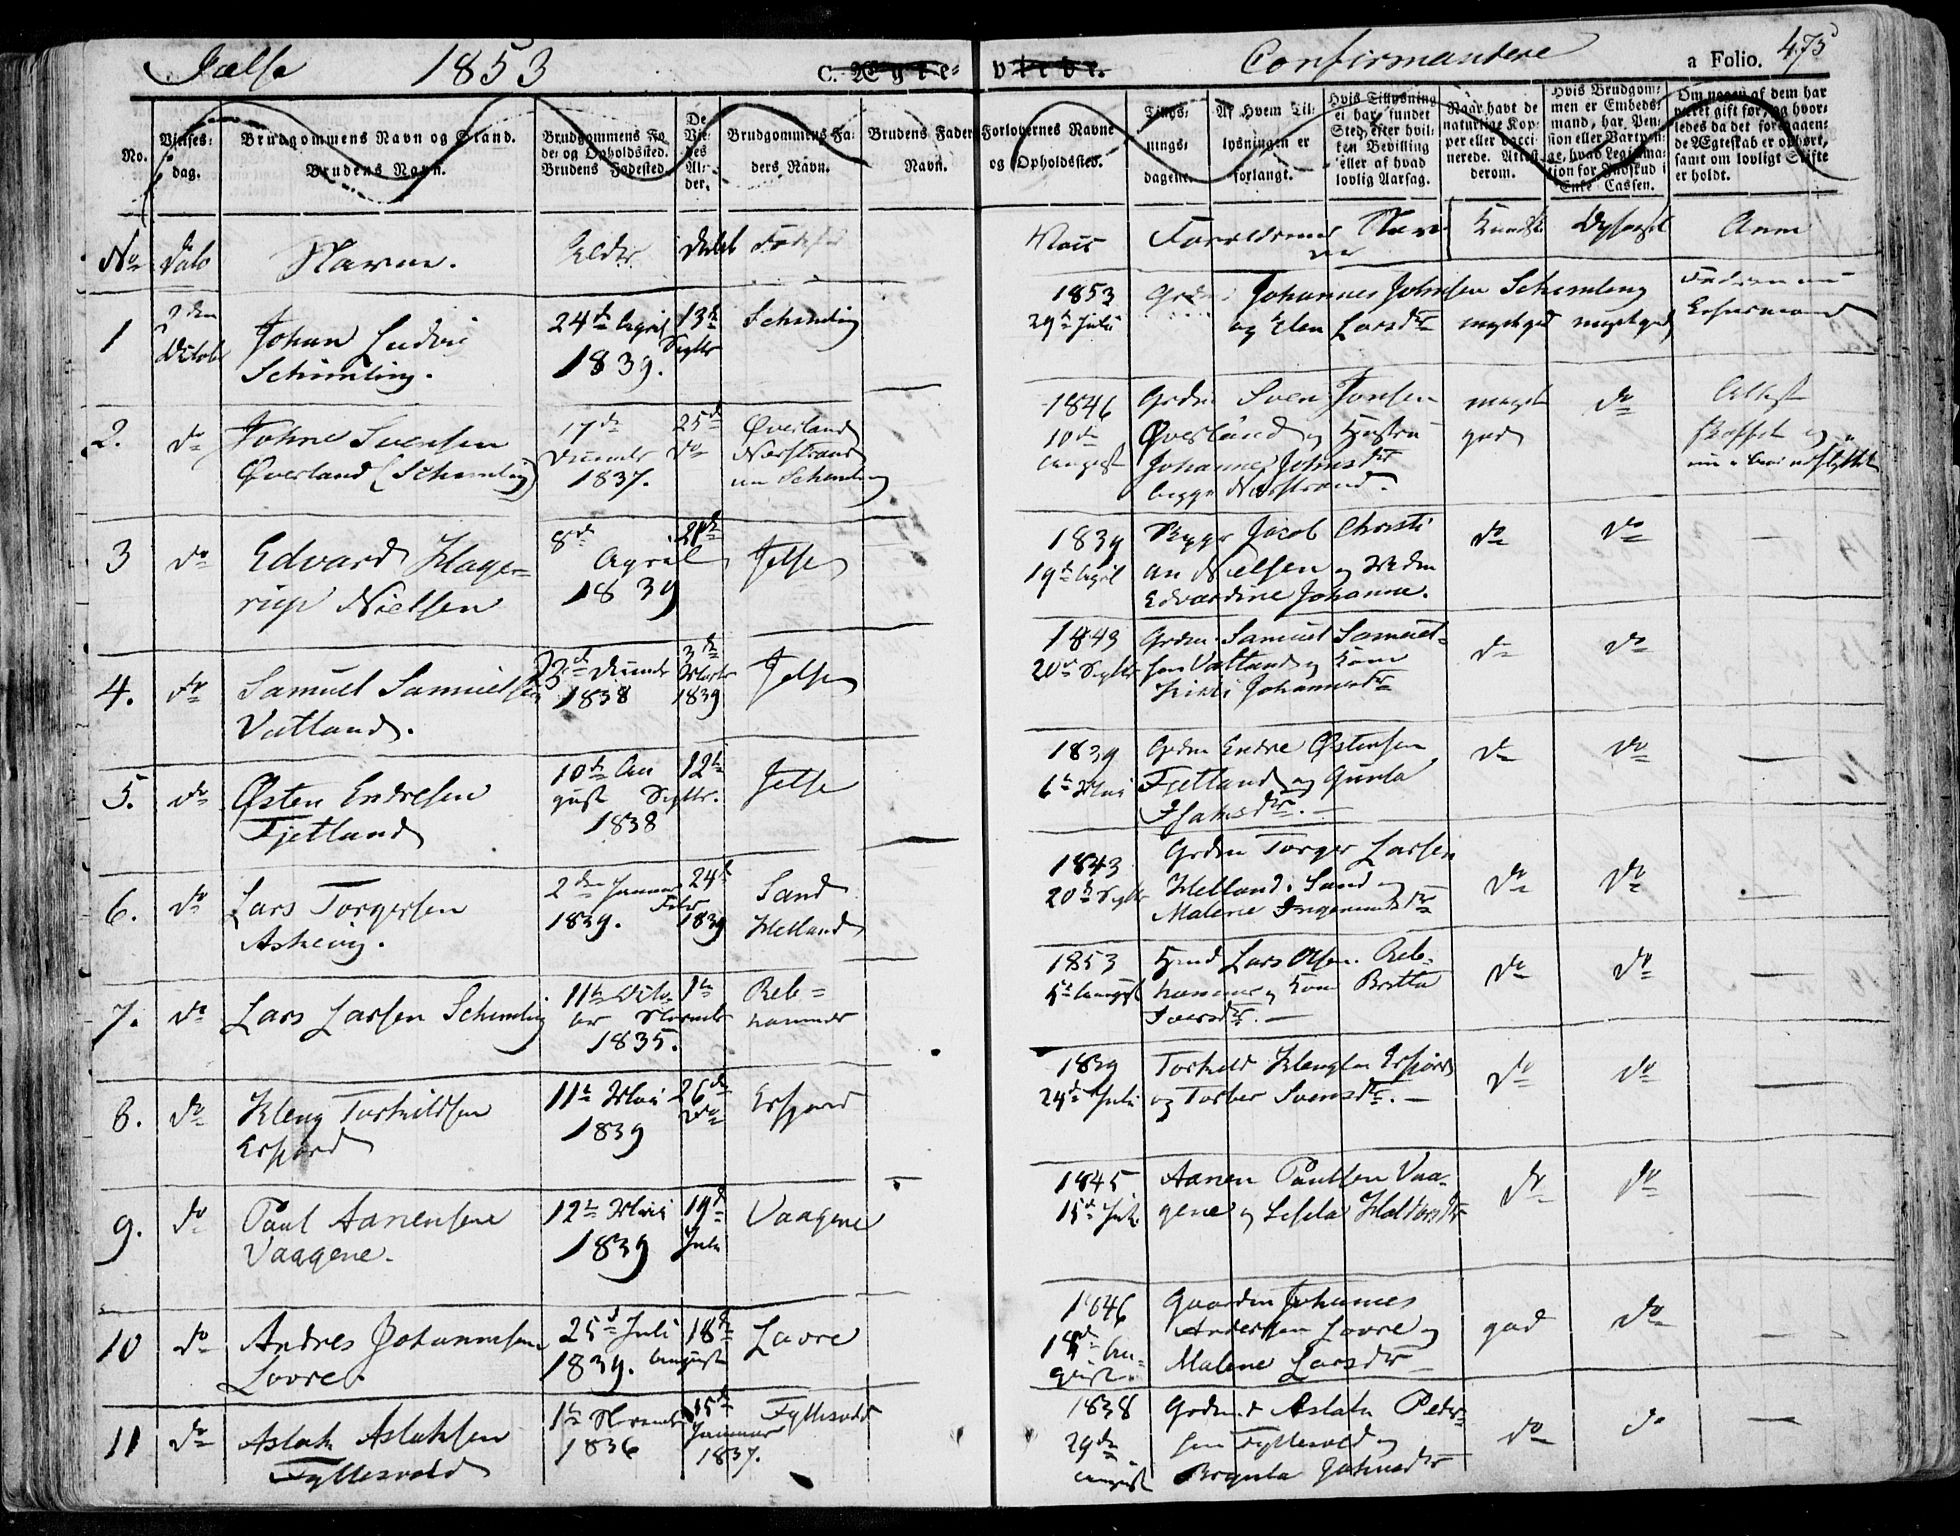 Jælse 1853 C. Ægte= vieде. Confirmandere a Folio. 475
No.
Vielses-
dag.
Brudgommens Navn og Stand.
Brudens Navn.
Brudgommens Fø-
de- og Opholdssted.
Brudens Fødested.
De
Vie-
des
Al-
der.
Brudgommens Fa-
ders Navn.
Brudens Faders
Navn.
Forlovernes Navne
og Opholdssted.
Tillys-
nings-
dagene.
Af Hvem Til-
lysningen er
forlangt.
Hvis Tillysning
ei har fundet
Sted, efter hvil-
ken Bevilling
eller af hvad
lovlig Aarsag.
Naar havt de
naturlige Kop-
per eller vacci-
nerede. Attest-
derom.
Hvis Brudgom-
men er Embeds-
mand, har Pen-
sion eller Vartpen-
ge, hvad Legitima-
tion for Indskud i
Enke Cassen.
Om nogen af dem har
været gift før, og hvor-
ledes da det foregaaen-
de Ægteskab er ophørt,
samt om lovligt Skifte
er holdt.
No Dato Navn. Alder. Døbt Fødested
Vacc Forældrenes Navne Kundsk Opførsel Anm
1
2den
Octob
Johan Ludvig
Schimling.
24de April
1839.
13de
Septbr
Schimling
1853
29de Juli
Grdm Johannes Johnsen Schimling
og Elen Larsdtr
meget god
meget god
2.
do
Johne Svensen
Øverland (Schimling)
17de
Decembr
1837.
25de
do
Øverland
Nærstrand
nu Schimling
1846
10de
August
Grdm Sven Jonsen
Øverland og Hustru
Johanne Johnsdtr
begge Nærstrand.
meget
god
do
Attest
3
do
Edvard Hage-
rup Nielsen
8de
April
1839
21de
Jelse
1839
19de April
Jacob Christi
an Nielsen og Mdm
Edvardine Johanne.
do
do
—
4.
do
Samuel Samuelsen
Vatland.
23de Decembr
1838
3de
Marts
1839
Jelse
1843
20de Septbr
Grdm Samuel Samuel-
sen Vatland og Kone
Kirsti Johannesdtr
do
do
—
5.
do
Østen Endresen
Fjetland
10de Au
gust
1838
12te
Septbr.
Jelse
1839
6te Mai
Grdm Endre Østensen
Fjetland og Gunla
Isaksdtr. —
do
do
—
6.
do
Lars Torgersen
Askevig.
2den Januar
1839.
24de
Febr
1839
Sand
Helland
1843
20de Septbr
Grdm Torger Larsen
Helland i Sand og
Malene Ingemundsdtr
do
do
—
7.
do
Lars Larsen Schimling
11te Octo-
br
1835.
1te
Novembr
Reb-
hammer
1853
5te August
Hmd Lars Olsen Reb-
hammer og Kone Britta
Iversdtr. —
do
do
—
8.
do
Kleng Torkildsen
Erfjord
11te Mai
1839
26de
do
Erfjord
1839
24de Juli
Torkild Klengsen Erfjord
og Torber Svensdtr. —
do
do
—
9.
do
Paul Aanensen
Vaagene.
12te Mai
1839
19de
Juli
Vaagene
1845
15de Juli
Aanen Paulsen Vaa-
gene og Lisela Halvorsdtr
do
do
—
10
do
Andres Johannesen
Lovre.
25de Juli
1839.
18de
August
Lovre
1846
18de Au-
gust.
Gaardm Johannes
Andersen Lovre og
Malene Larsdtr —
god
do
—
11
do
Aslak Aslaksen
Fyllesvold
1te Novembr
1836
15de
Januar
1837.
Fyllesvold
1838
29de
August
Grdmd Aslak Peder-
sen Fyllesvold og
Brynla Johnsdtr
do
do
—